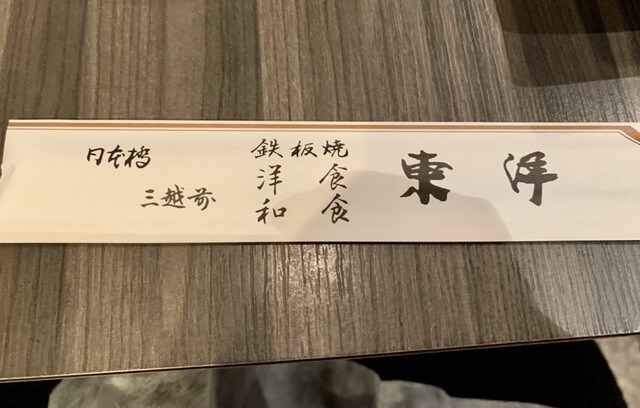 日本橋
三越前
鉄板焼
洋食
和食
東洋